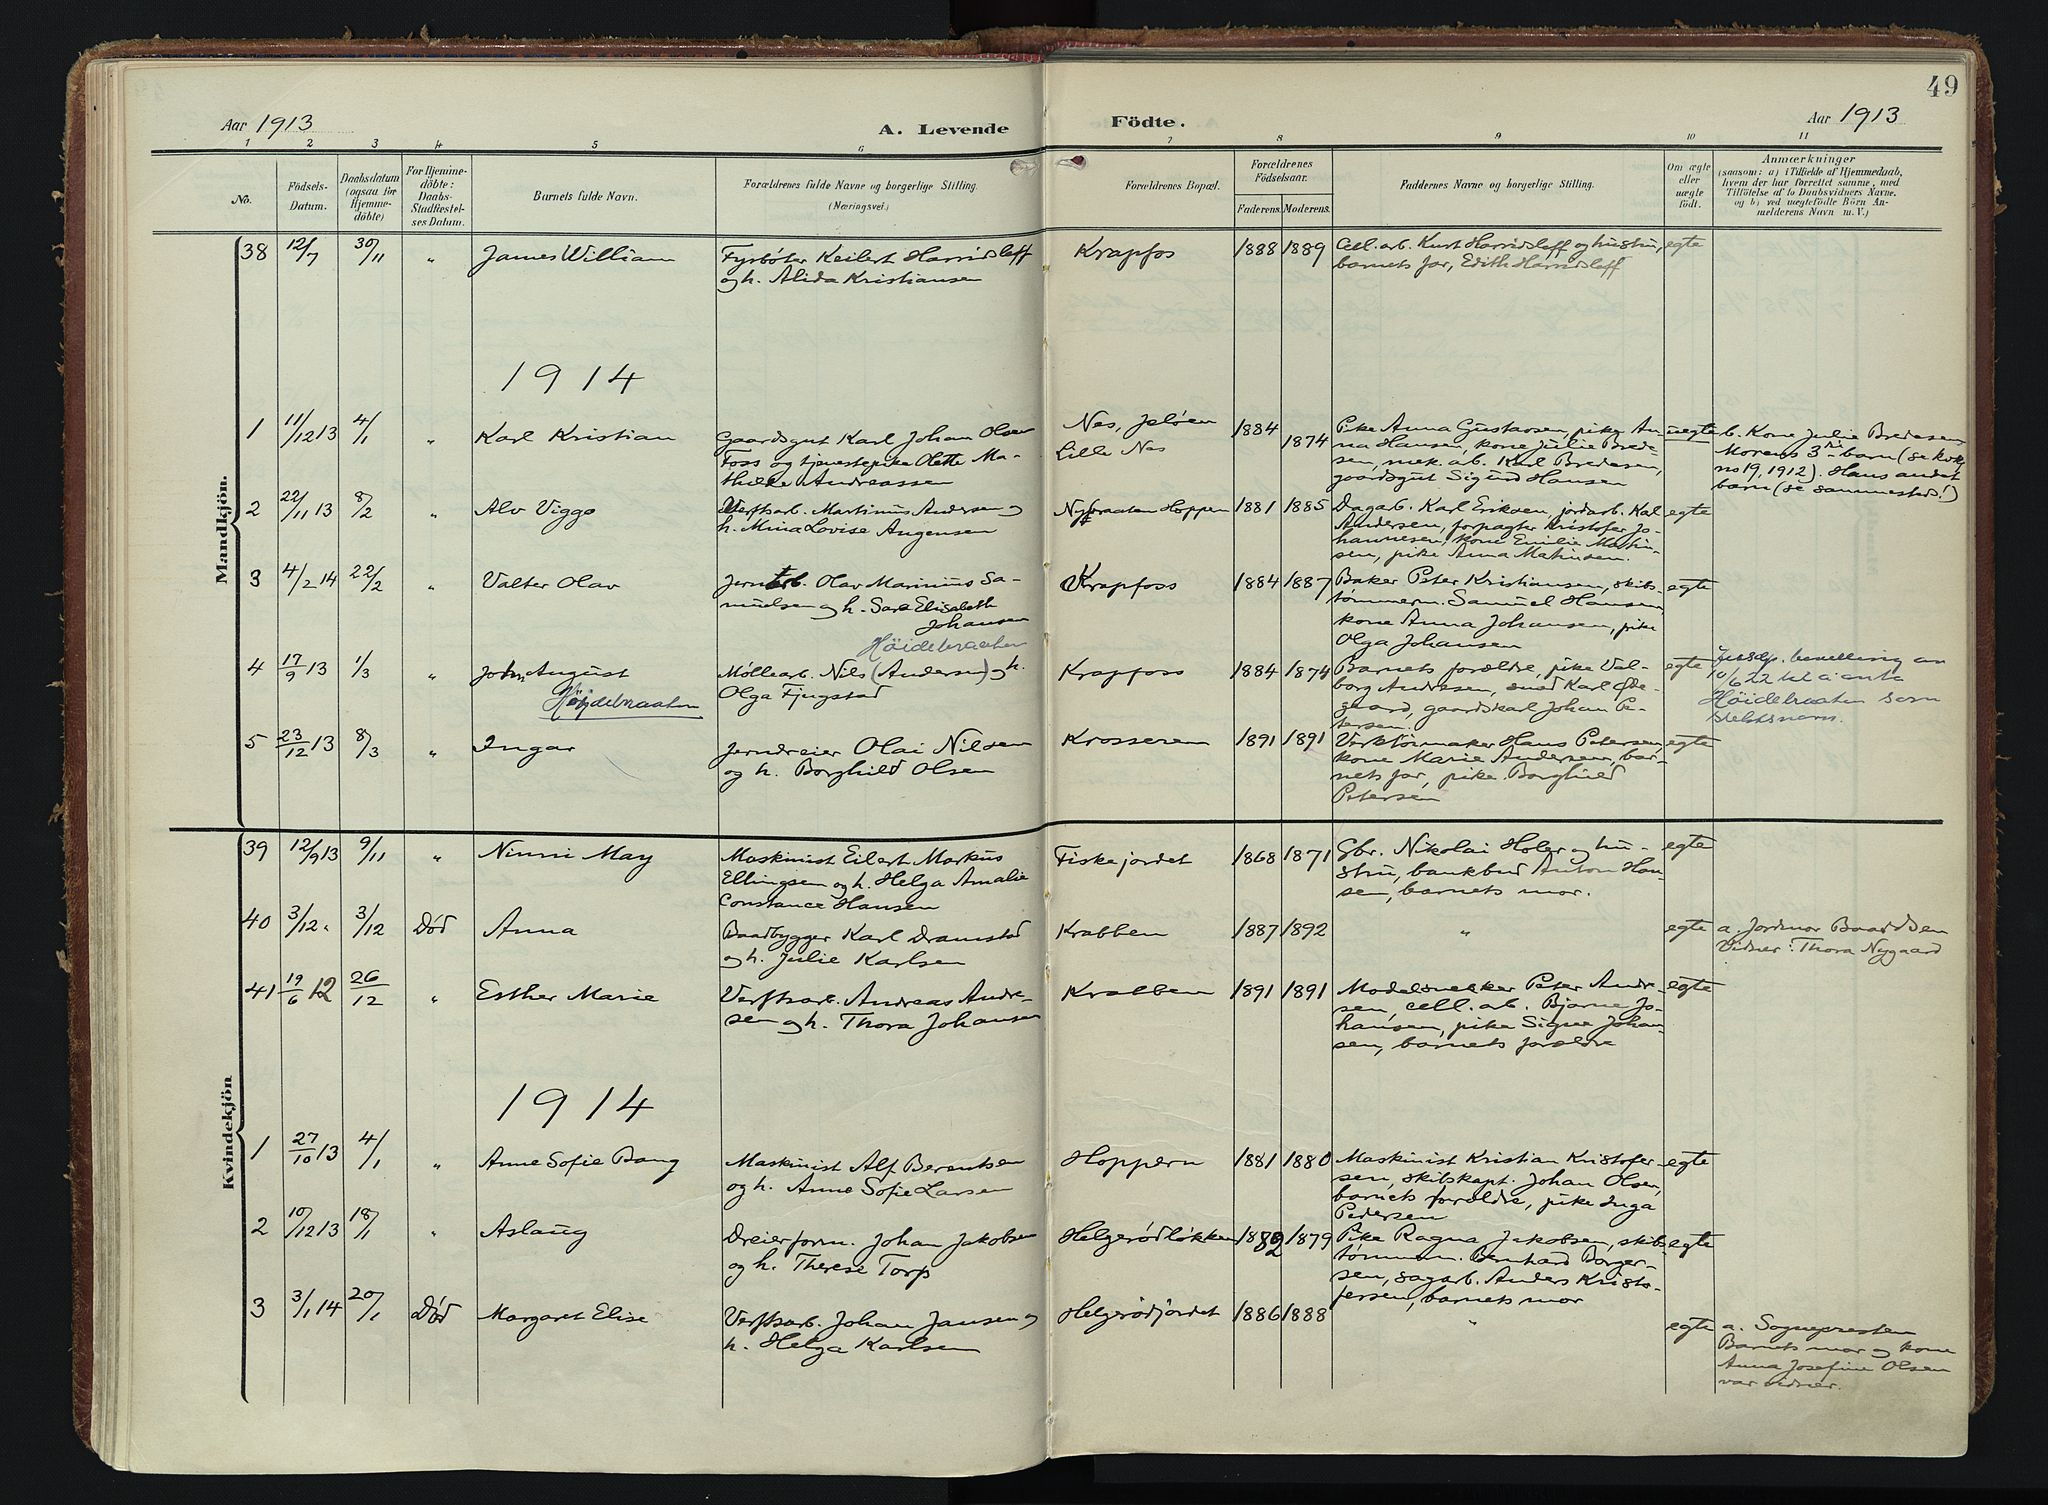 49
Aar 1913
A. Levende Födte.
Aar 1913
1 2 3 4 5 6 7 8 9 10 11
No.
Födsels-
Datum.
Daabsdatum
(ogsaa for
Hjemme-
döbte)
For Hjemme-
döbte:
Daabs-
Stadfæstel-
ses Datum.
Barnets fulde Navn.
Forældrenes fulde Navne og borgerlige Stilling.
(Næringsvei.)
Forældrenes Bopæl.
Forældrenes
Födselsaar.
Faderens. Moderens.
Faddernes Navne og borgerlige Stilling.
Om ægte
eller
uægte
födt.
Anmærkninger
(saasom: a) i Tilfælde af Hjemmedaab,
hvem der har forrettet samme, med
Tilföielse af to Daabsvidners Navne.
og b) ved uægtefödte Börn An-
melderens Navn m. V.)
Mandkjön.
38 12/7 30/11 " James William
Fyrbøter Keilert Harridsleff
og h. Alida Kristiansen
Krapfos 1888 1889
Cell. arb. Kurt Harridsleff og hustru,
barnets far, Edith Harridsleff
egte
1914
1 11/12 13 4/1 " Karl Kristian
Gaardsgut Karl Johan Olsen
Foss og tjenestepike Olette Ma-
thilde Andreassen
Nes, Jeløen
Lille Nes
1884 1874
Pike Anna Gustavsen, pike An-
na Hansen, kone Julie Brede-
sen, mek. arb. Karl Bredesen,
gaardsgut Sigurd Hansen
uegte
b. Kone Julie Bredesen
Morens 3die barn (se
no 19, 1912). Hans andet
barn (se sammesteds!)
2 22/11 13 8/2 " Alv Viggo
Verftsarb. Martinus Andersen og
h. Mina Lovise Augensen
Nybraaten Hoppern 1881 1885
Dagarb. Karl Eriksen, jordarb. Karl
Andersen, forpagter Kristofer Jo-
hannesen, kone Emilie Martin-
sen, pike Anna Mathisen.
egte
3 4/2 14 22/2 " Valter Olav
Jernarb. Olav Marinius Sa-
muelsen og h. Sara Elisabeth
Johansen
Krapfoss 1884 1887
Baker Peter Kristiansen, skibs-
tømmerm. Samuel Hansen
kone Anna Johansen, pike
Olga Johansen
egte
4 17/9 13 1/3 " John August
Høidebraaten
Høidebraaten
Møllearb. Nils (Andersen) og h.
Olga Fjugstad
Krapfoss 1884 1874
Barnets forældre, pike Val-
borg Andersen, smed Karl Øde-
gaard, gaardskarl Johan Pe-
tersen
egte
Jusdp. bevilling av
10/6 22 til å anta
Høidebraaten som
slektsnavn.
5 23/12 13 8/3 " Ingar
Jerndreier Olai Nilsen
og h. Borghild Olsen
Krosseren 1891 1891
Verktøimaker Hans Petersen,
kone Marie Andersen, bar-
nets far, pike Borghild
Petersen
egte
Kvindekjön
39 12/9 13 9/11 " Ninni May
Maskinist Eilert Markus
Ellingsen og h. Helga Amalie
Constance Hansen
Fiskejordet 1868 1871
Gbr. Nikolai Holer og hu-
stru, bankbud Anton Han-
sen, barnets mor.
egte
40 3/12 " 3/12 Død Anna
Baadbygger Karl Dramstad
og h. Julie Karlsen
Krabben 1887 1892 " egte
a. Jordmor Baardsen
Vidner: Thora Nygaard
41 19/6 12 26/12 " Esther Marie
Verftsarb. Andreas Andre-
sen og h. Thora Johansen
Krabben 1891 1891
Modelsnekker Peter Andre-
sen, cell. arb. Bjarne Jo-
hansen, pike Signe Johan-
sen, barnets forældre
egte
1914
1 27/10 13 4/1 " Anne Sofie Bang
Maskinist Alf Berentsen
og h. Anne Sofie Larsen
Hoppern 1881 1880
Maskinist Kristian Kristofer-
sen, skibskapt. Johan Olsen,
barnets forældre, pike Inga
Pedersen
egte
2 10/12 13 18/1 " Aslaug
Dreierform. Johan Jakobsen
og h. Therese Torp
Helgerødløkken 1882 1879
Pike Ragna Jakobsen, skibs-
tømmerm. Bernhard Borger-
sen, sagarb. Anders Kristo-
fersen, barnets mor
egte
3 3/1 14 20/1 Død Margaret Elise
Verftsarb. Johan Jansen og
h. Helga Karlsen
Helgerødjordet 1886 1888 " egte
a. Sognepresten
Barnets mor og kone
Anna Josefine Olsen
var vidner.